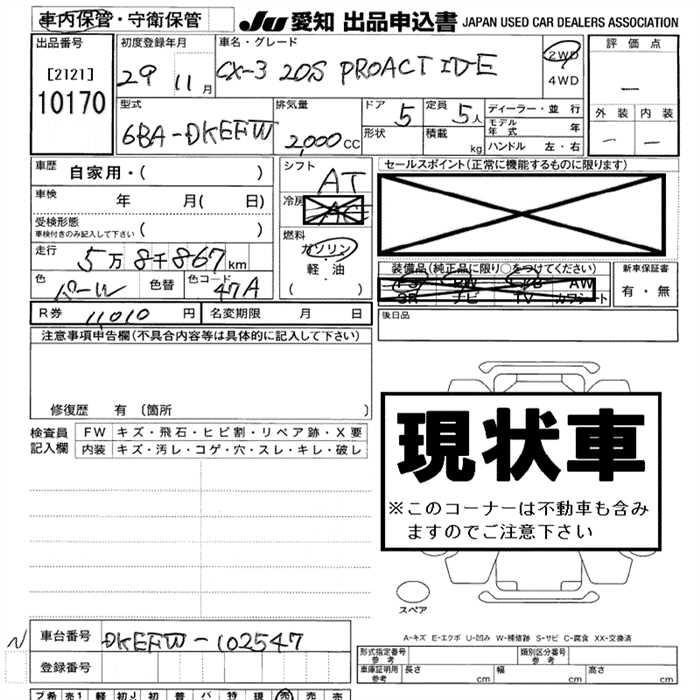 車内保管・守衛保管 JU 愛知 出品申込書 JAPAN USED CAR DEALERS ASSOCIATION
出品番号 [2121] 10170
初度登録年月 29 11月
車名・グレード CX-3 20S PROACTIVE
2WD 4WD
評価点 —
外装 — 内装 —
型式 6BA-DKEFW
排気量 2,000cc
ドア 5
形状
定員 5人
積載 kg
ディーラー・並行
モデル年式 年
ハンドル 左・右
車歴 自家用・( )
車検 年 月( 日)
受検形態
車検付きのみ記入して下さい ( )
走行 5万8千867km
色 パール 色替 色コード 47A
シフト AT
冷房
燃料 ガソリン・軽油 ( )
セールスポイント(正常に機能するものに限ります)
装備品(純正品に限り○をつけてください)
AW
SR ナビ TV カワシート
新車保証書 有・無
R券 11,010円 名変期限 月 日
後日品
注意事項申告欄(不具合内容等は具体的に記入して下さい)
修復歴 有 (箇所 )
検査員記入欄
FW キズ・飛石・ヒビ割・リペア跡・X要
内装 キズ・汚レ・コゲ・穴・スレ・キレ・破レ
現状車
※このコーナーは不動車も含み
ますのでご注意下さい
スペア
A-キズ E-エクボ U-凹み W-補修跡 S-サビ C-腐食 XX-交換済
N 車台番号 DKEFW-102547
登録番号
形式指定番号 参考 類別区分番号 参考
車庫証明用 参考 長さ cm 幅 cm 高さ cm